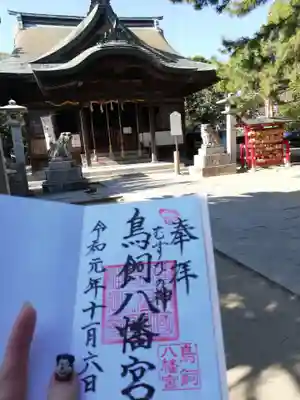 奉拝
むすひの神
鳥飼八幡宮
令和元年十一月六日
鳥飼
八幡宮